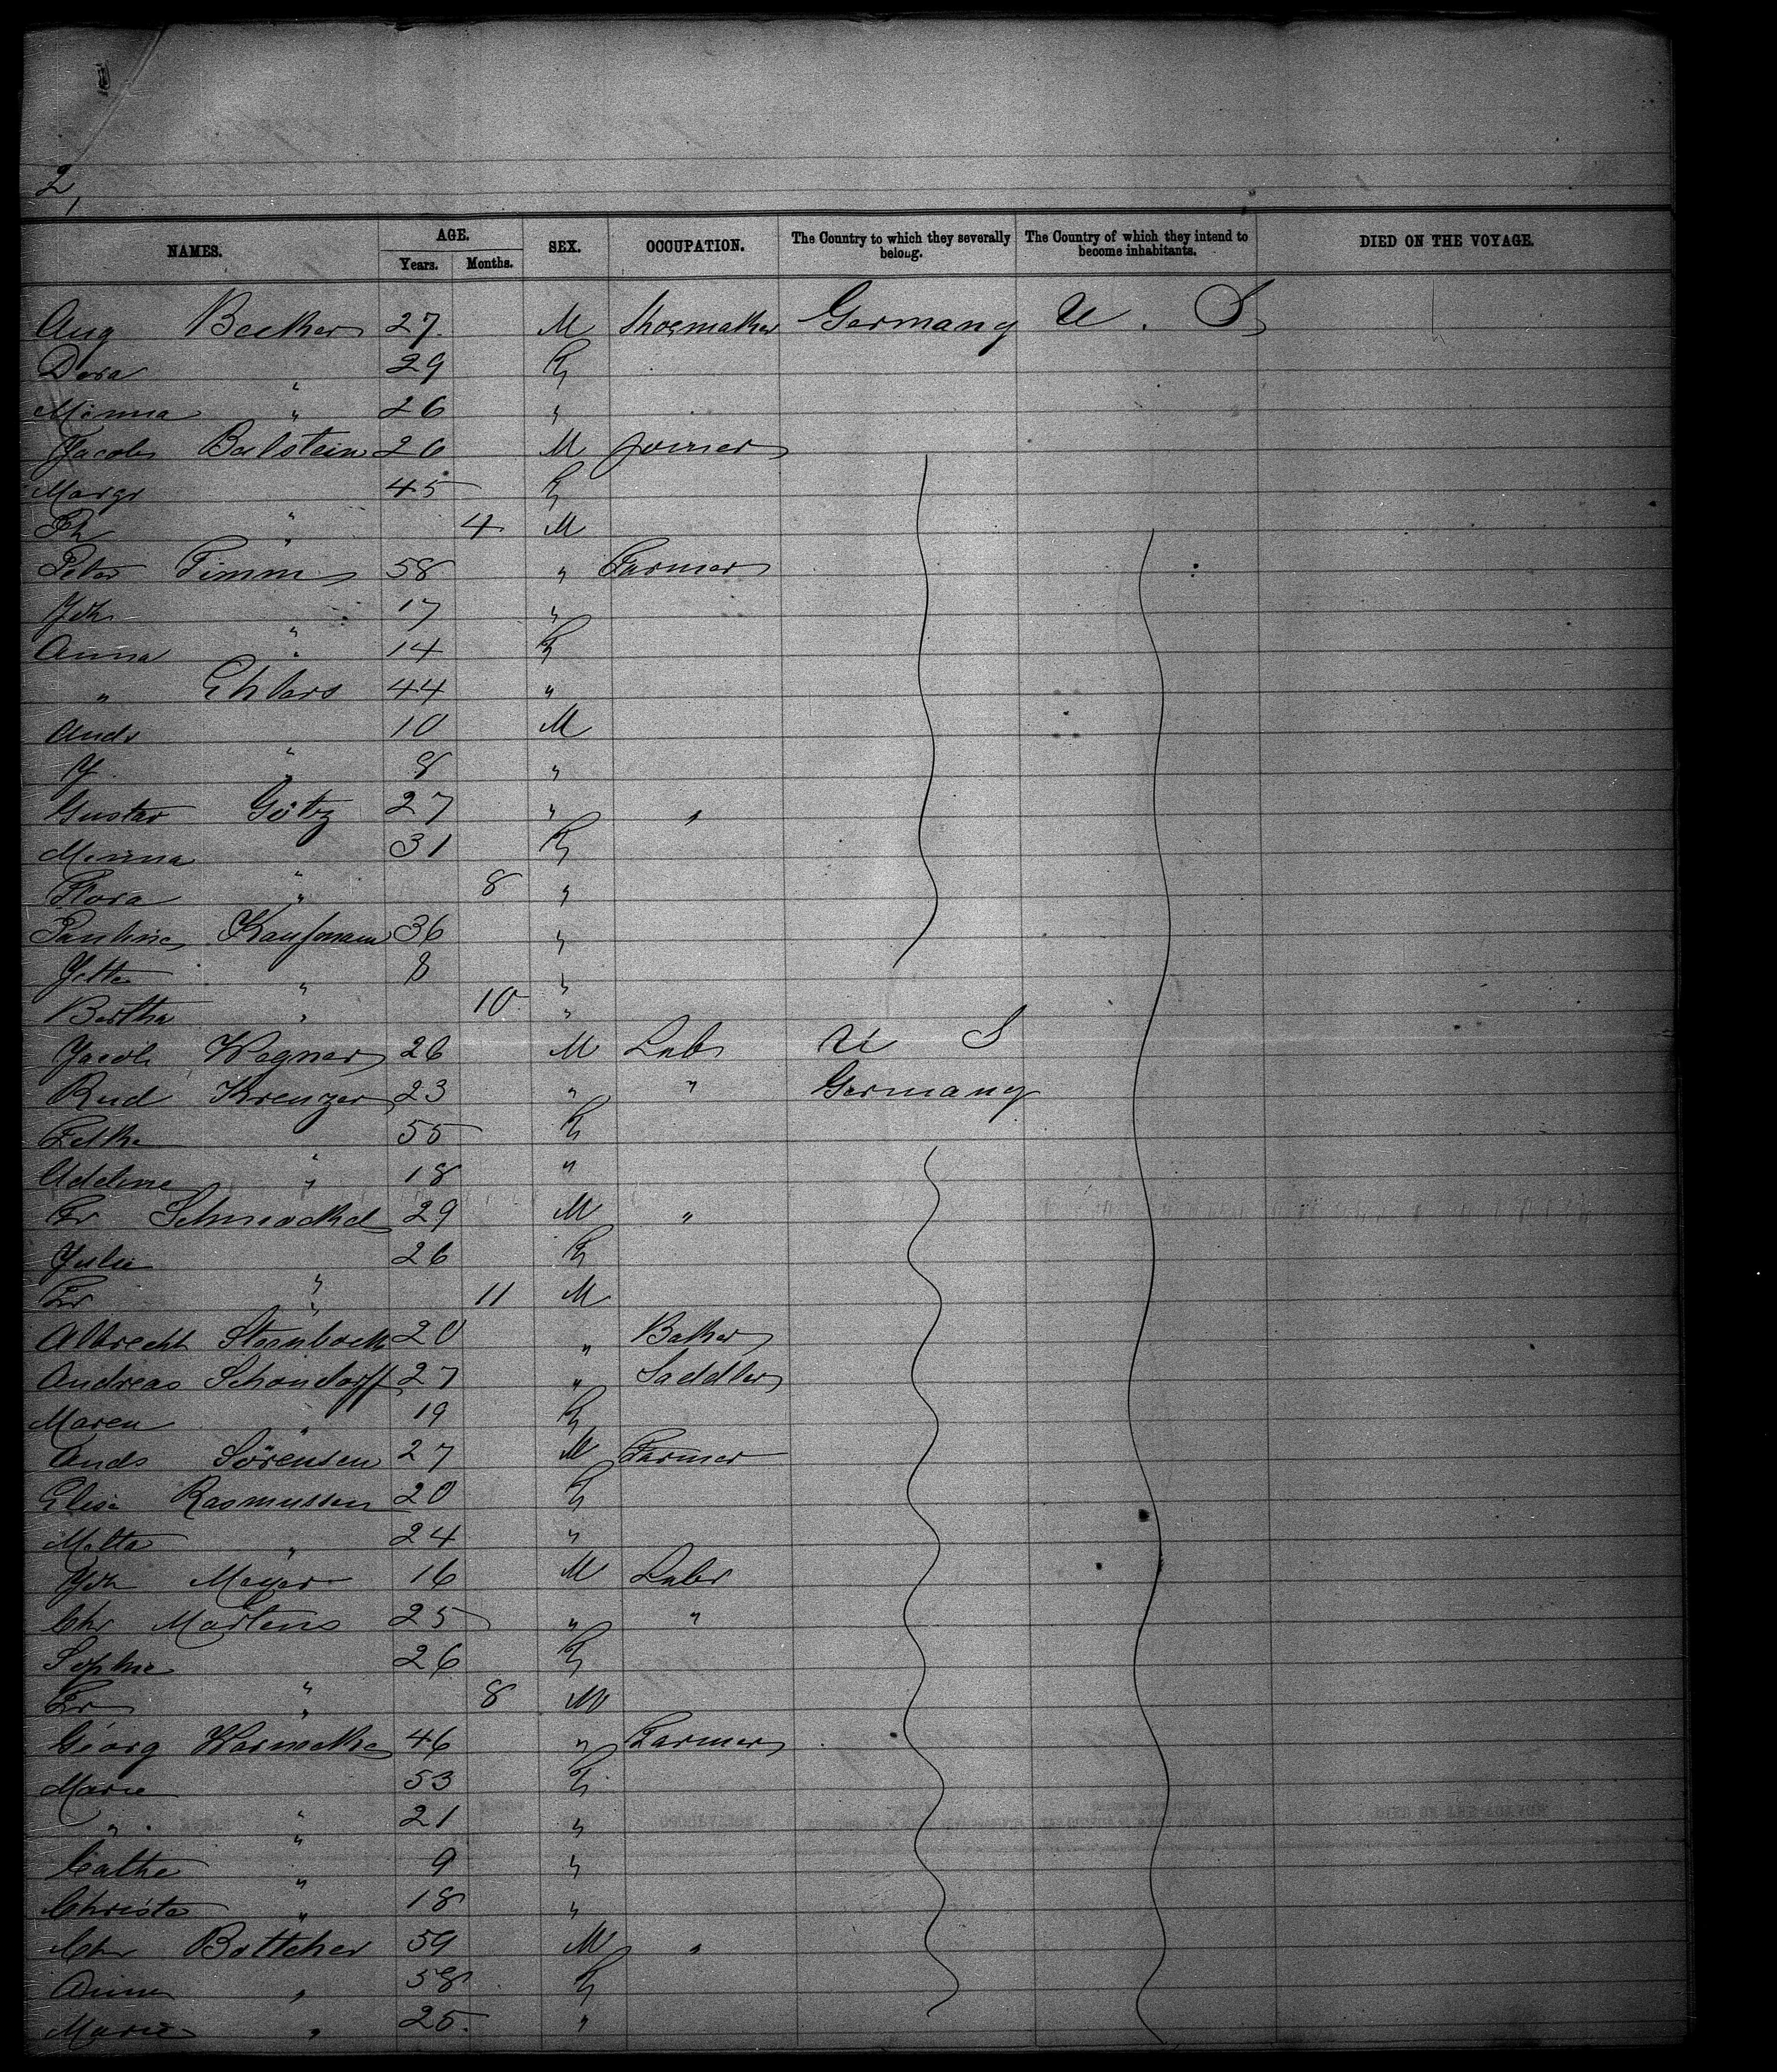 2,
NAMES. AGE. SEX. OCCUPATION. The Country to which they severally belong. The Country of which they intend to become inhabitants. DIED ON THE VOYAGE.
Years. Months.
Aug Becker 27 M Shoemaker Germany U. S
Dora " 29 F
Minna " 26 "
Jacob Balstein 26 M Joiner
Margr " 45 F
Ph " 4 M
Peter Timm 58 " Farmer
Joh " 17 "
Anna " 14 F
" Ehlers 44 "
Andr " 10 M
J " 8 "
Gustav Götz 27 " "
Minna " 31 F
Flora " 8 "
Pauline Kaufmann 36 "
Jette " 8 "
Bertha " 10 "
Jacob Wagner 26 M Labr U S
Rud Kreuzer 23 " " Germany
Etke " 55 F
Adeline " 18 "
Fr Schmockel 29 M "
Julie " 26 F
Fr " 11 M
Albrecht Steinbock 20 " Baker
Andreas Schondorff 27 " Saddler
Maren " 19 F
Ands Sörensen 27 M Farmer
Elise Rasmussen 20 F
Metta " 24 "
Joh Meyer 16 M Labr
Chr Martens 25 " "
Sophie " 26 F
Fr " 8 M
Georg Warnecke 46 " Farmer
Marie " 53 F
" " 21 "
Cathe " 9 "
Christe " 18 "
Chr Bottcher 59 M "
Anna " 58 F
Marie " 25 "